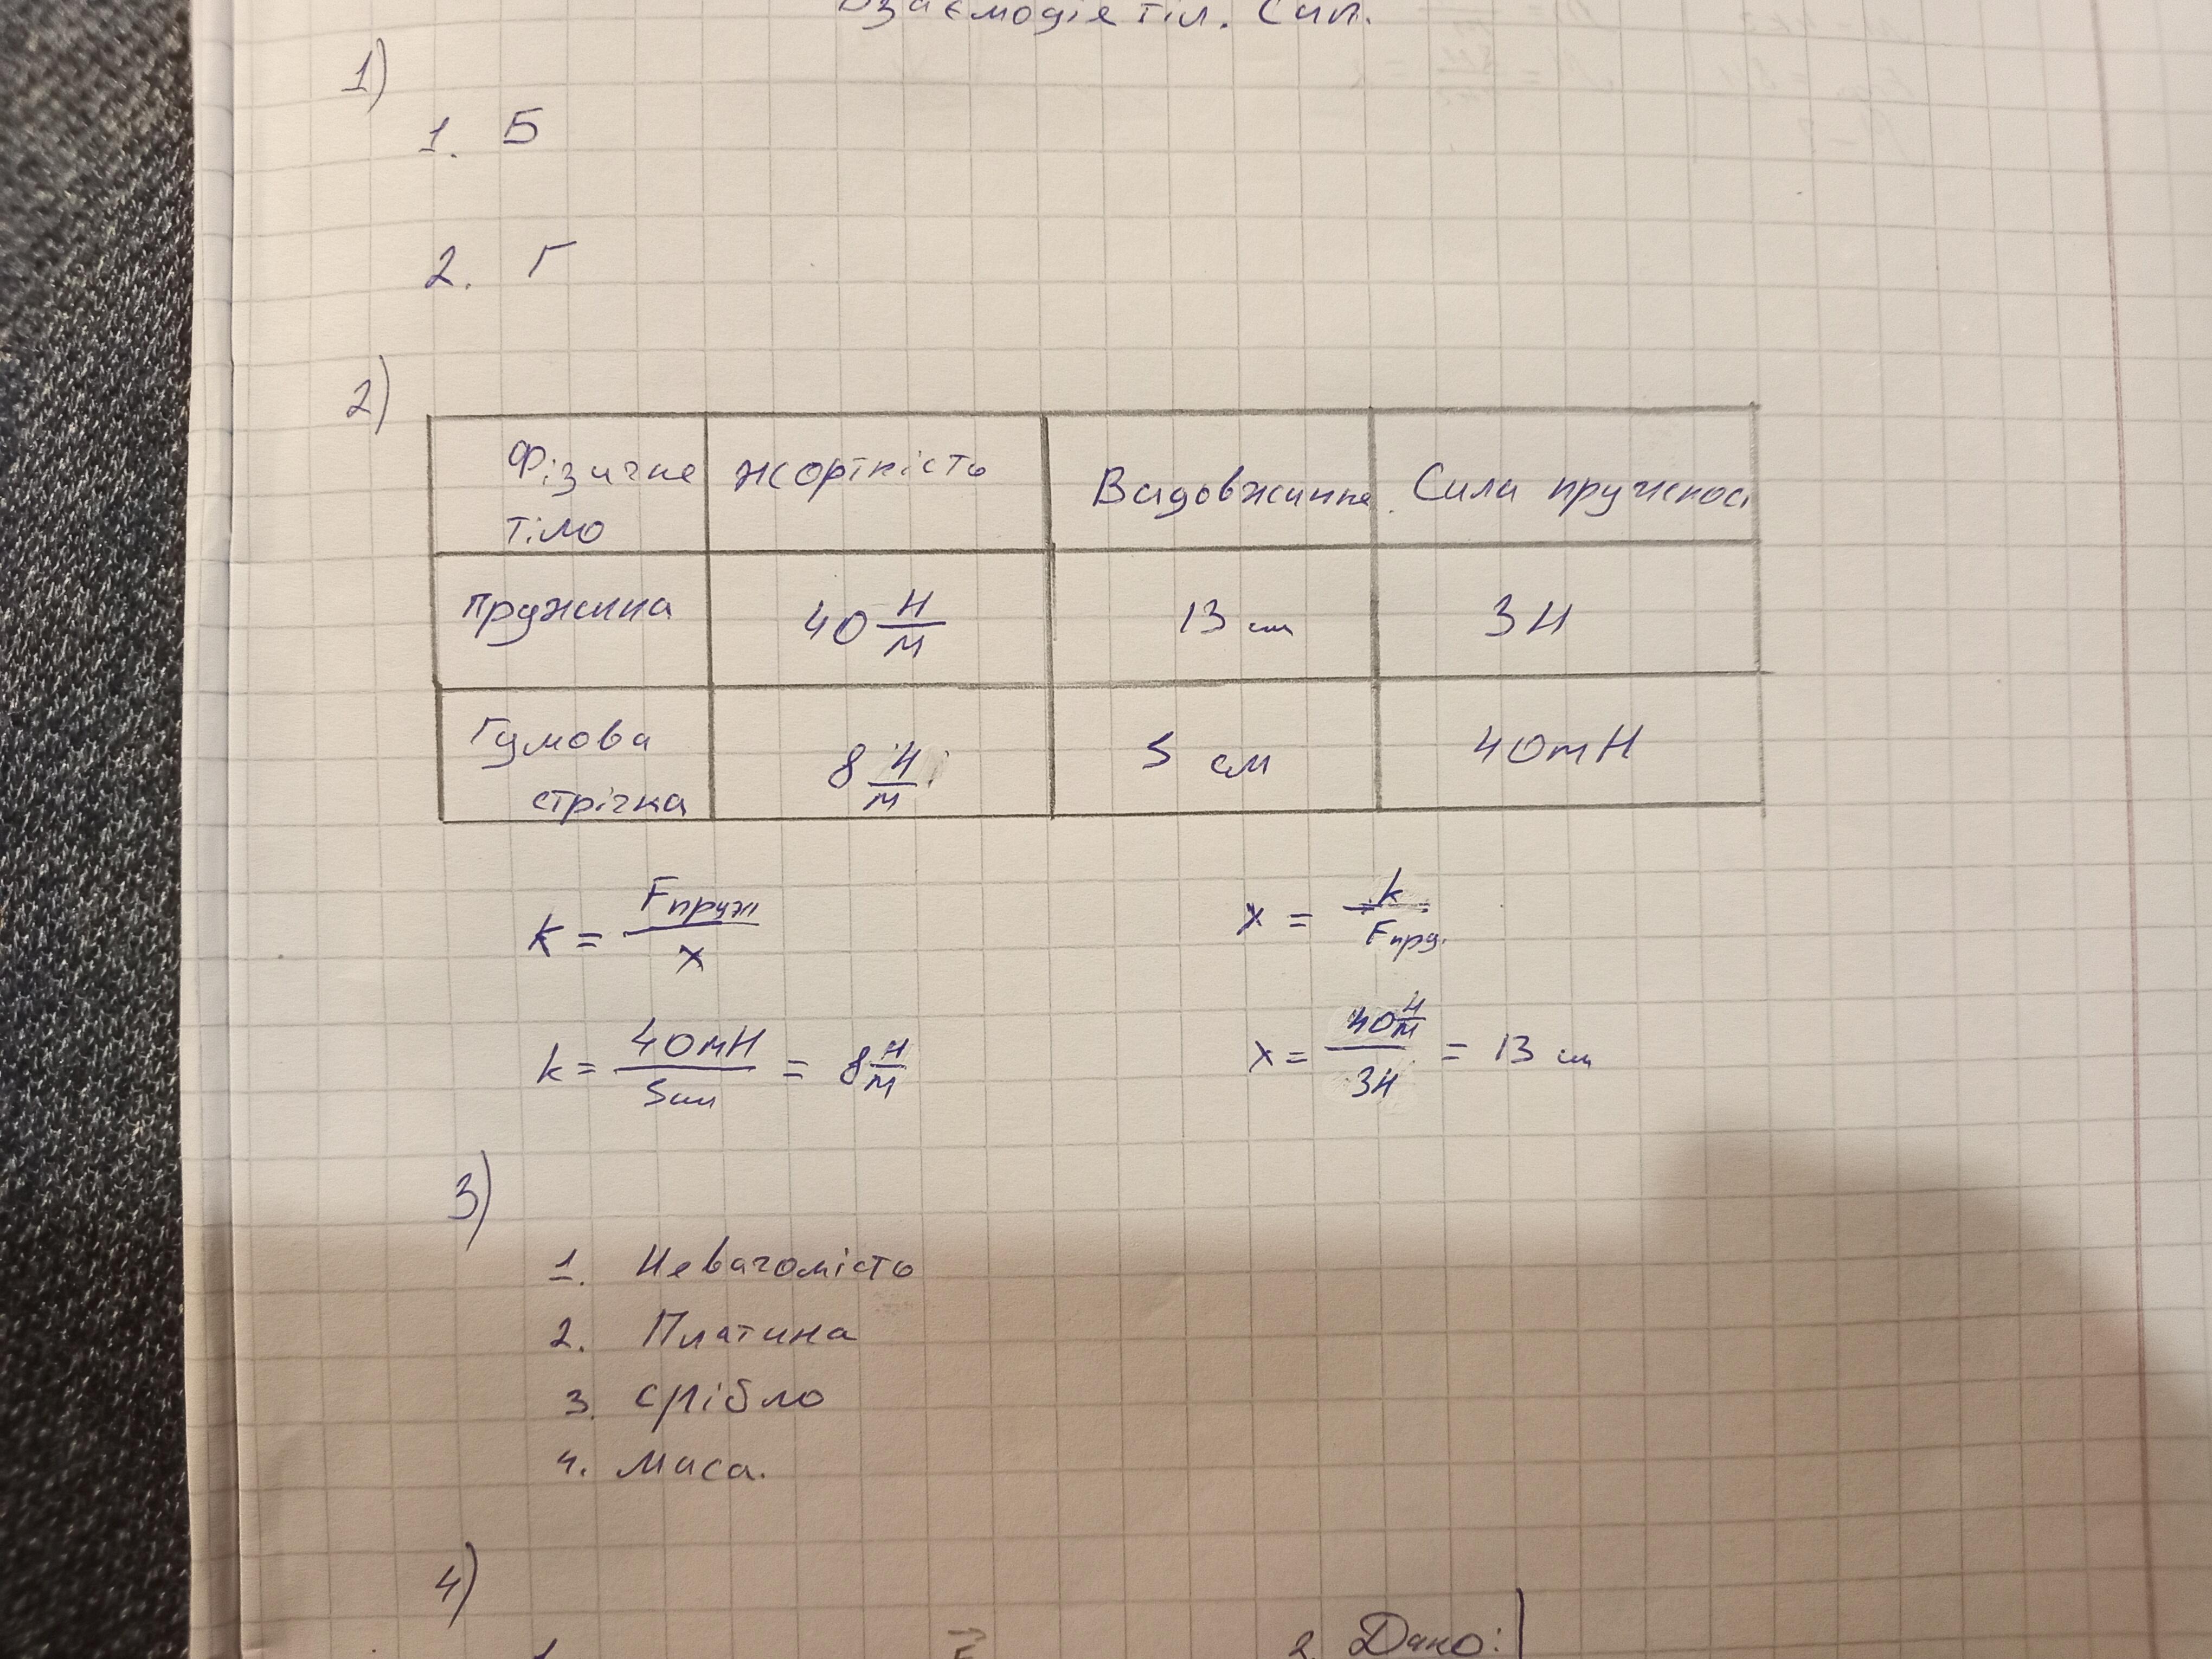 Взаємодія тіл. Сил.
1)
1. Б
2. Г
2)
Фізичне тіло жорткість Видовження Сила пружност
пружина 40 Н/м 13 см 3Н
Гумова стрічка 8 Н/м 5 см 40mН
k = Fпруж/x x = k/Fпру.
k = 40mН/5см = 8 Н/м x = 40 Н/м/3Н = 13 см
3)
1. Невагомість
2. Платина
3. срібло
4. маса.
4)
1 2. Дано: